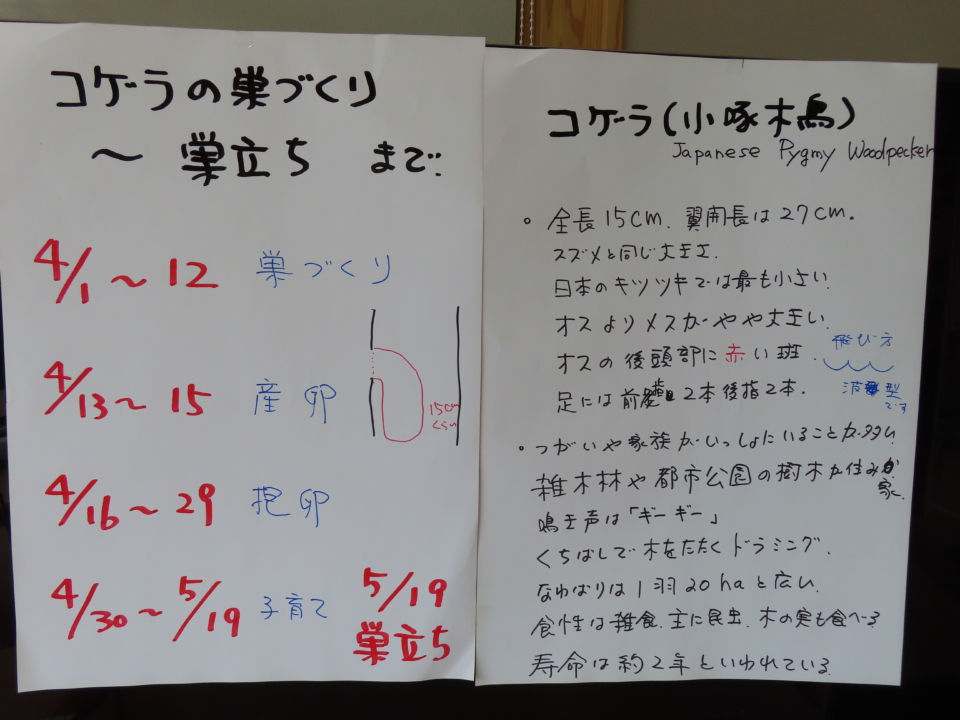 コゲラの巣づくり
～ 巣立ち まで.
4/1 ～ 12 巣づくり
4/13 ～ 15 産卵
15cm
くらい
4/16 ～ 29 抱卵
4/30 ～ 5/19 子育て
5/19
巣立ち
コゲラ(小啄木鳥)
Japanese Pygmy Woodpecker
。全長15cm、翼開長は27cm.
スズメと同じ大きさ.
日本のキツツキでは最も小さい.
オスよりメスがやや大きい.
オスの後頭部に赤い斑.
飛び方
波型
です
足には前 2本後指2本.
。つがいや家族がいっしょにいることが多い
雑木林や都市公園の樹木が住みか
家.
鳴き声は「ギーギー」
くちばしで木をたたくドラミング.
なわばりは1羽20haと広い
食性は雑食.主に昆虫.木の実も食べる
寿命は約2年といわれている.